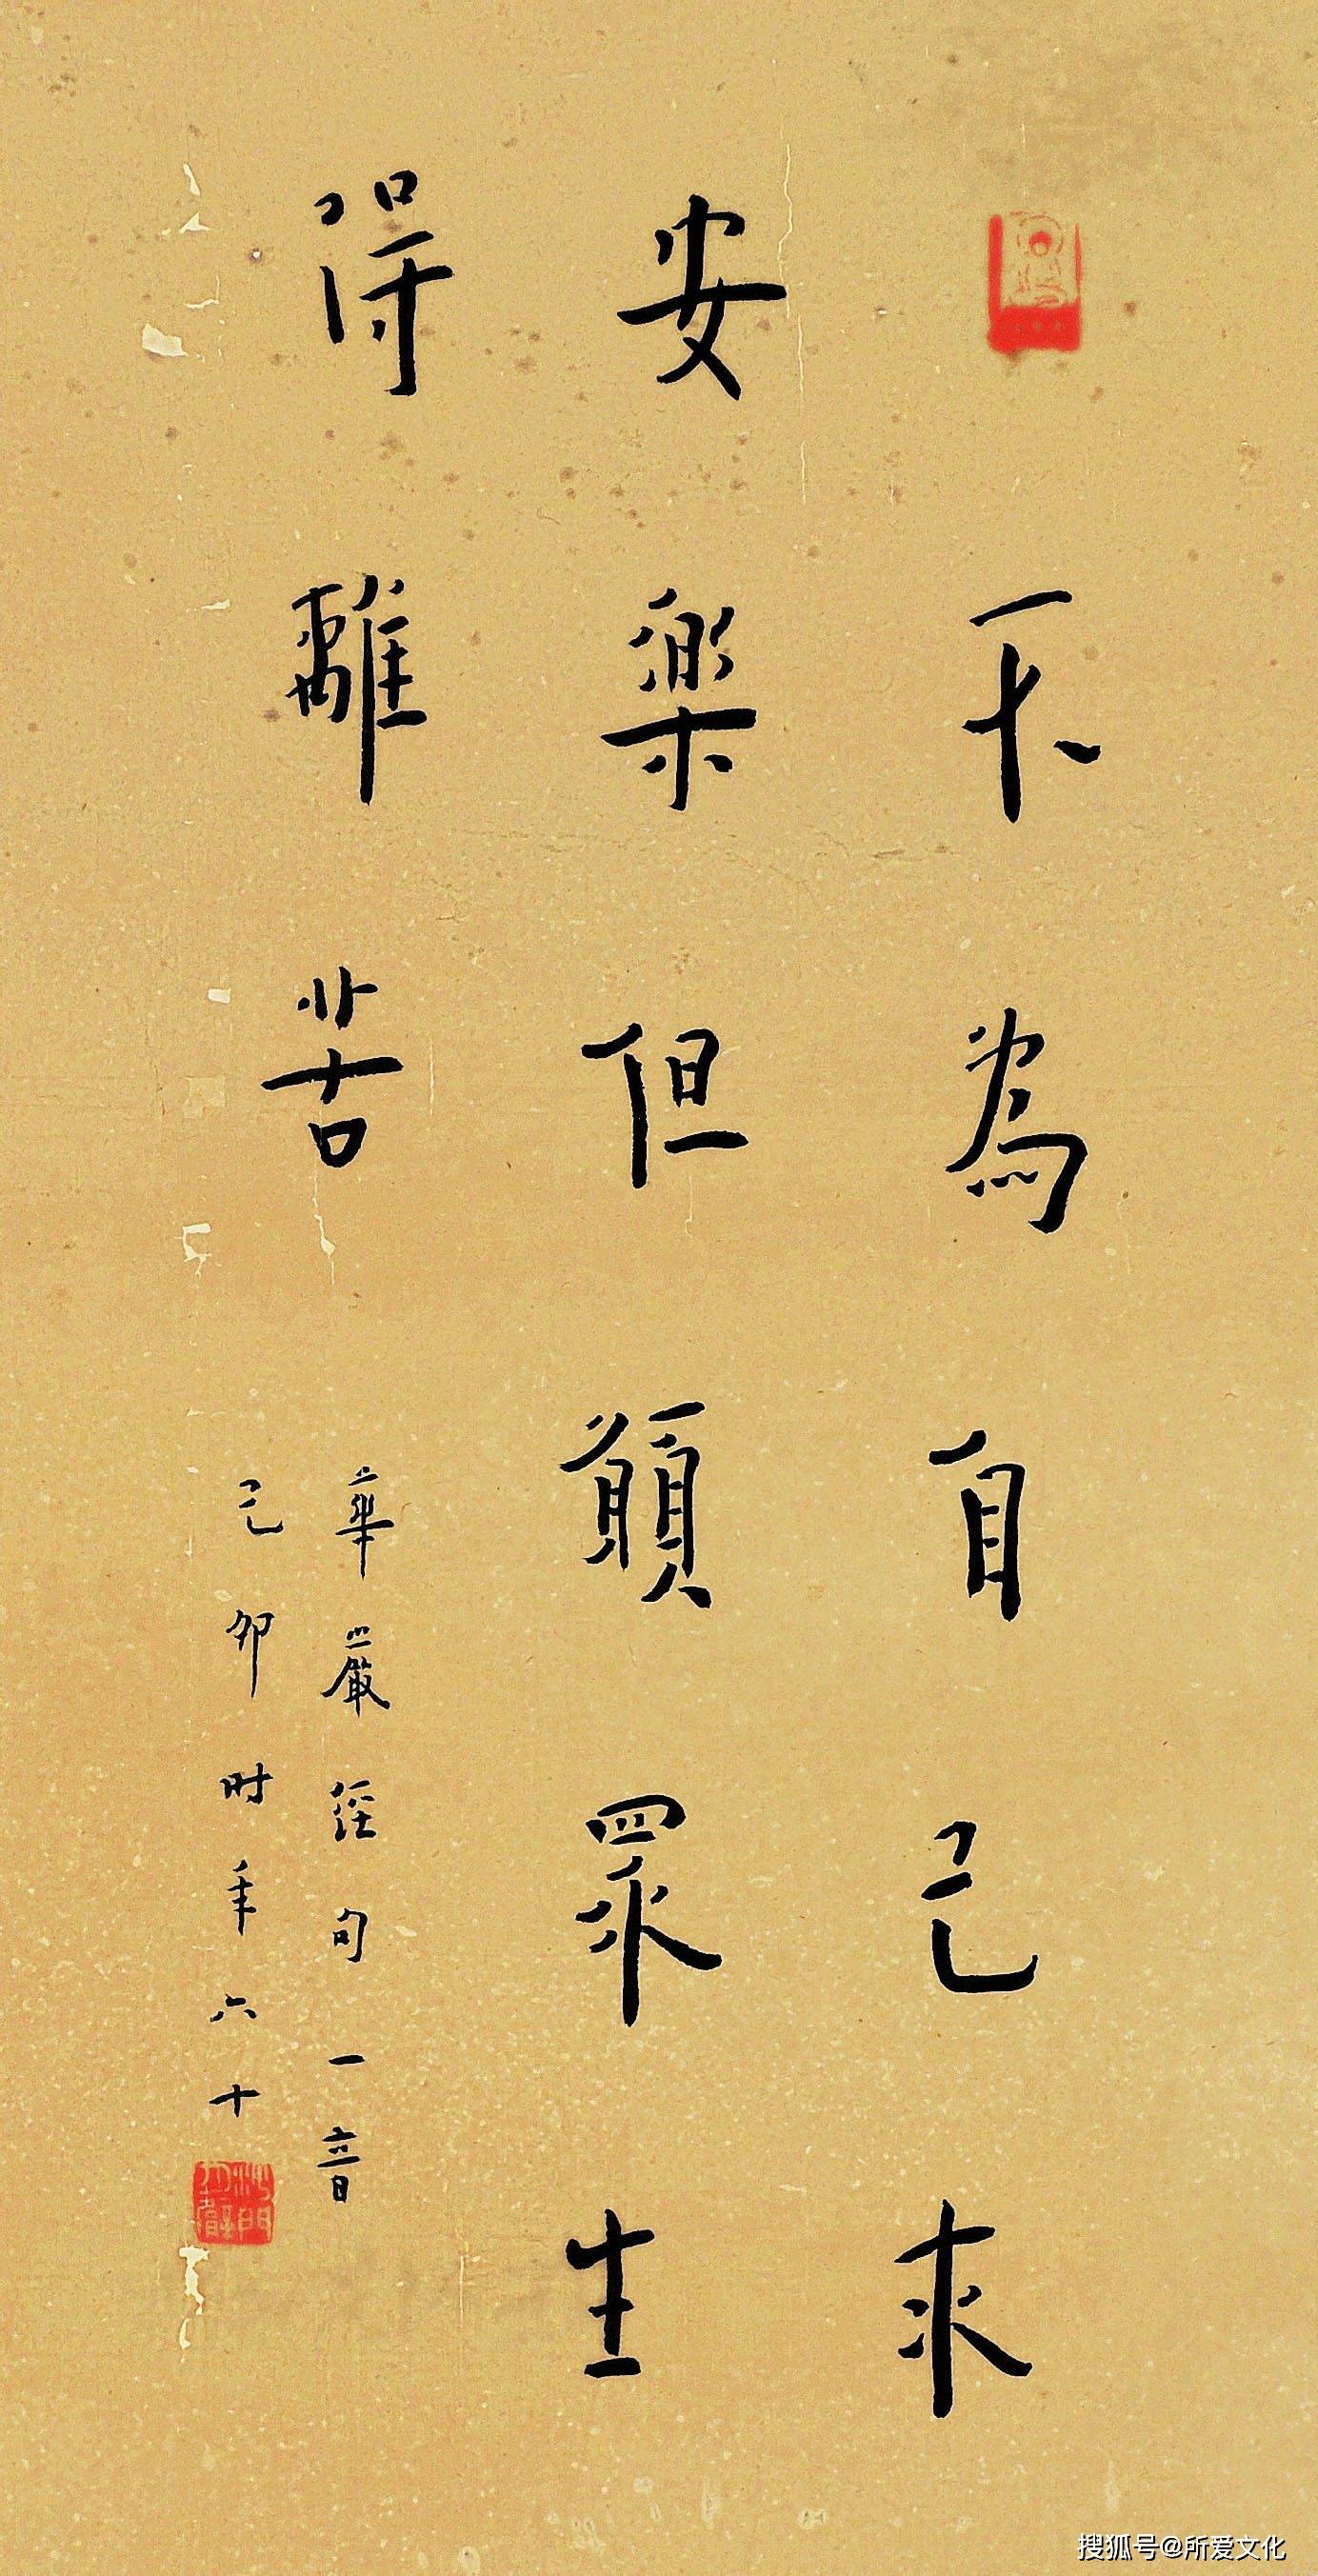 不為自己求
安樂但願眾生
得離苦
華嚴經句一音
己卯时年六十
搜狐号@所爱文化